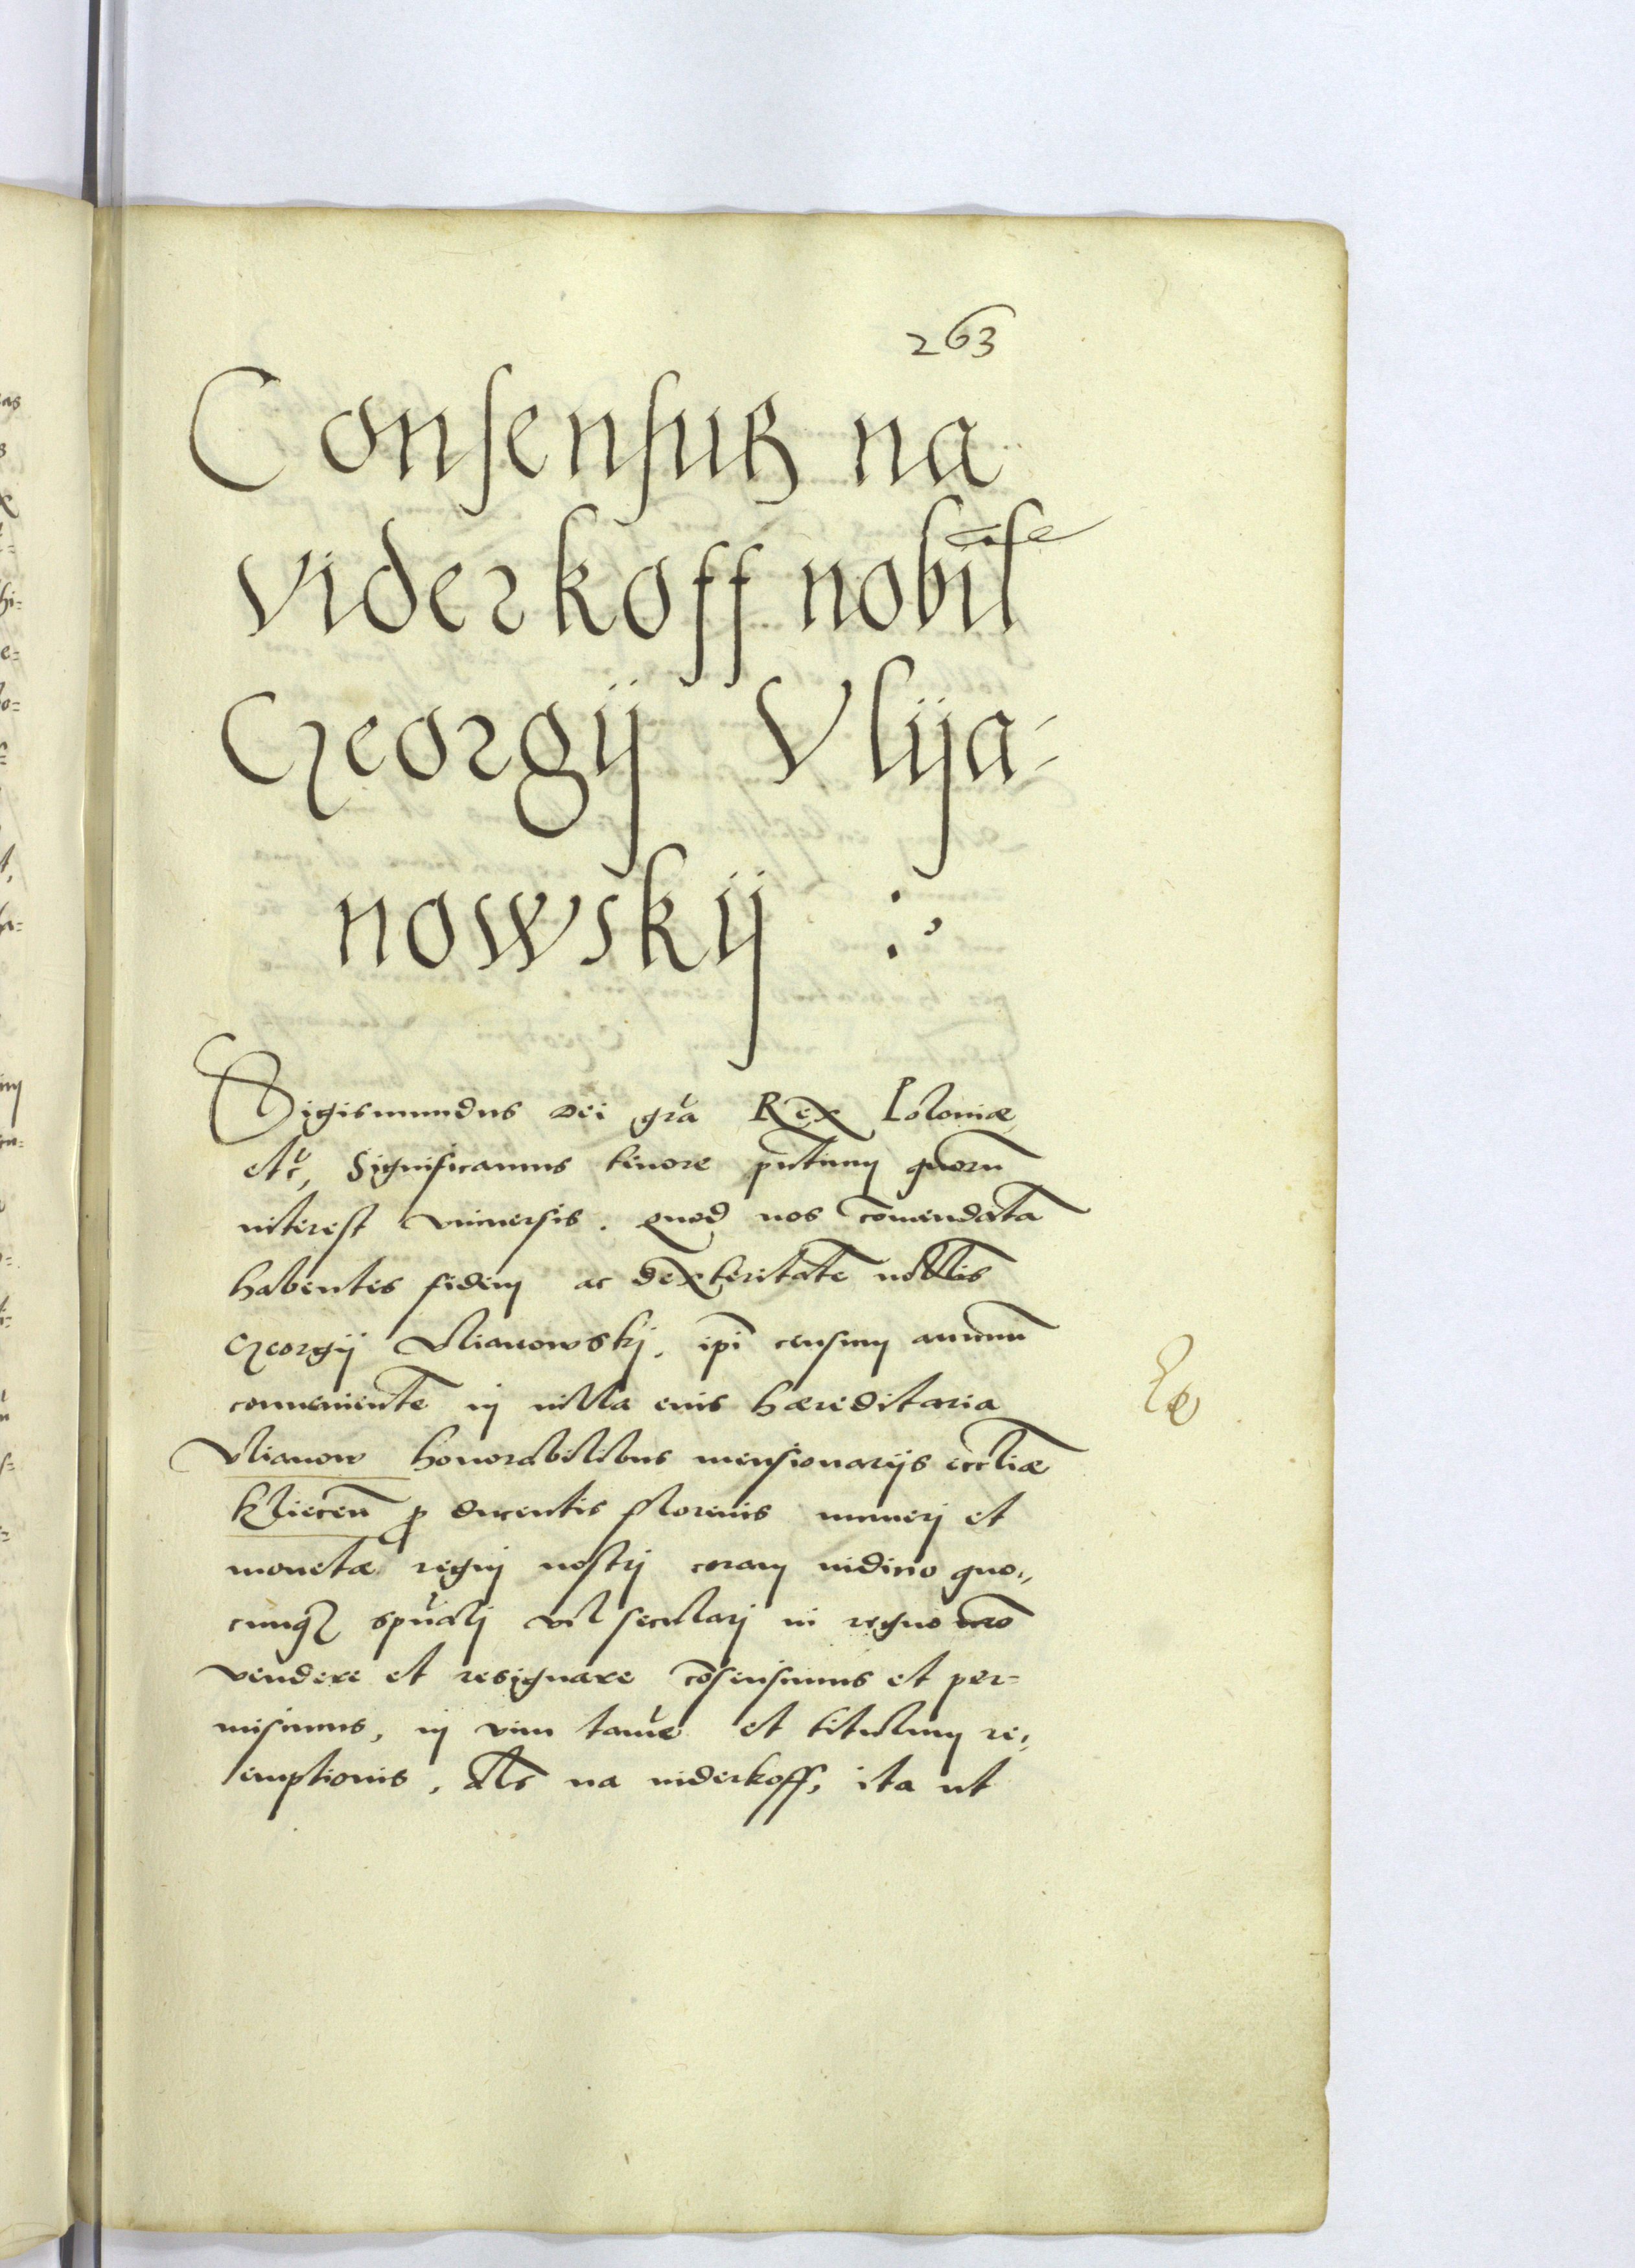 263
Consensus na
viderkoff nobil̃
Georgij Vlija-
nowskij :
Sigismundus Dei gr̃a Rex Poloniæ
etc̃, Significamus tenore pñtium quorũ
interest vniuersis. quod nos cõmendatã
habentes fidem ac dexteritatẽ nobilis
Georgij Vlianowskj. ip̃i censum annuũ
conuenientẽ in villa eius hæreditaria
Vlianow honorabilibus mensionarijs eccl̃iæ
Kliecen̄ p ducentis florenis numerj et
monetæ regnj nostrj coram iudicio quo„
cunq₃ spũalj vel secularj in regno nr̃o
vendere et resignare cõsensimus et per=
misimus, in vim tamẽ et titulum re„
emptionis, Als na viderkoff, ita ut